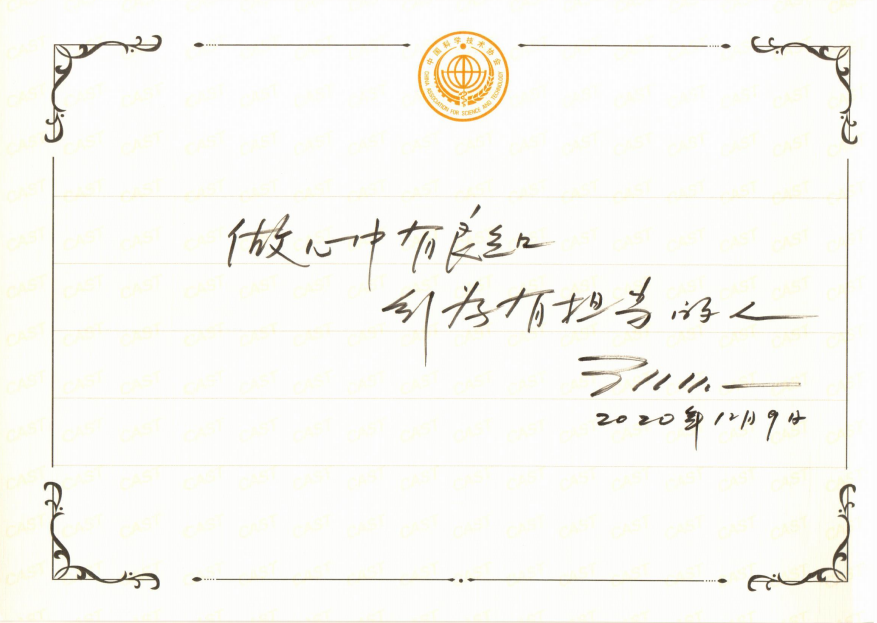 中国科学技术协会
CHINA ASSOCIATION FOR SCIENCE AND TECHNOLOGY
做心中有良知
行为有担当的人
2020年12月9日